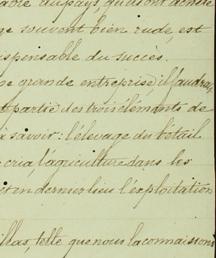 du pays, qu'ils ont
souvent bien rude, est
responsable du succès.
grande entreprise il faudrait
partie des trois éléments de
savoir: l'élevage du bétail
l'agriculture dans les
en dernier lieu l'exploitation
telle que nous la connaissons